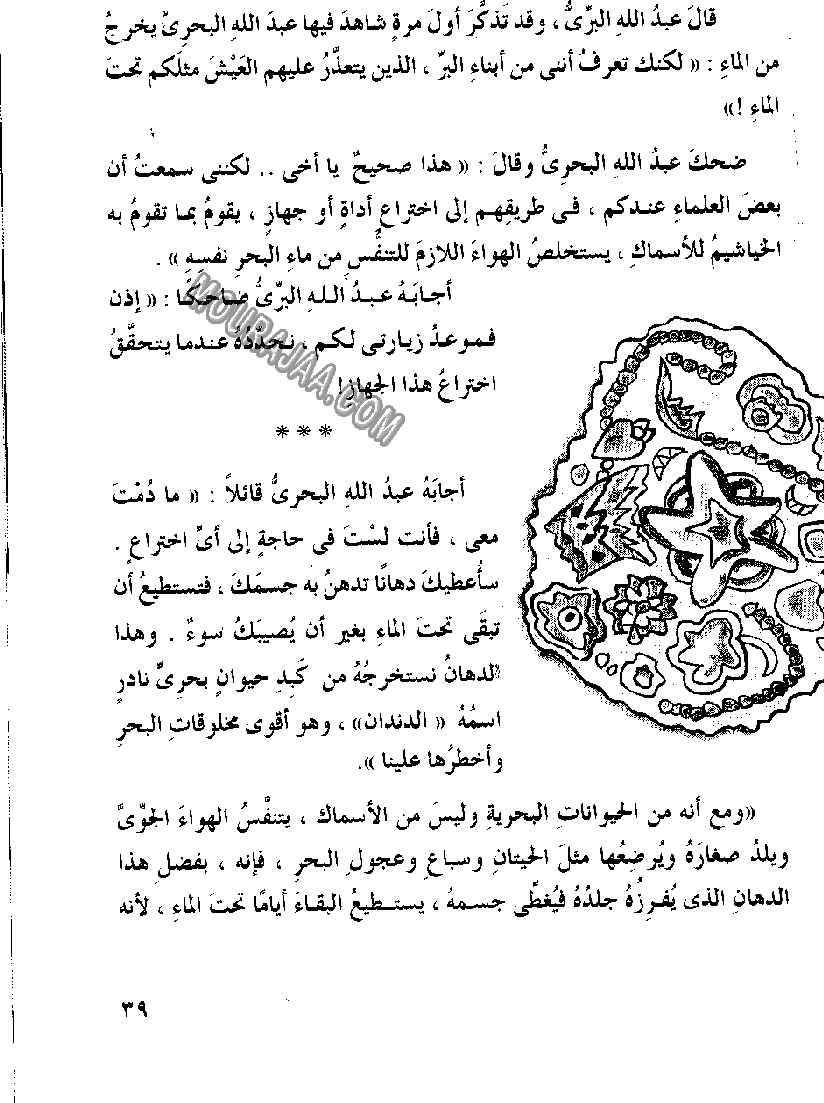 قالَ عبدُ اللهِ البرِّىُّ ، وقد تَذكَّرَ أولَ مرةٍ شاهدَ فيها عبدَ اللهِ البحرىَّ يخرجُ
من الماءِ : « لكنك تعرفُ أننى من أبناءِ البرِّ ، الذين يتعذَّرُ عليهم العَيْشُ مثلَكم تحتَ
الماءِ !»
ضحكَ عبدُ اللهِ البحرىُّ وقالَ : « هذا صحيحٌ يا أخى .. لكننى سمعتُ أن
بعضَ العلماءِ عندكم ، فى طريقِهم إلى اختراعِ أداةٍ أو جهازٍ ، يقومُ بما تقومُ به
الخياشيمُ للأسماكِ ، يستخلصُ الهواءَ اللازمَ للتنفُّسِ من ماءِ البحرِ نفسِهِ » .
أجابَهُ عبدُ اللهِ البرِّىُّ ضاحكًا : « إذن
فموعدُ زيارتى لكم ، نحدِّدُهُ عندما يتحقَّقُ
اختراعُ هذا الجهازِ!
* * *
أجابَهُ عبدُ اللهِ البحرىُّ قائلاً : « ما دُمْتَ
معى ، فأنت لسْتَ فى حاجةٍ إلى أىِّ اختراعٍ .
سأُعطيكَ دهانًا تدهنُ به جسمَكَ ، فتستطيعُ أن
تبقَى تحتَ الماءِ بغيرِ أن يُصيبَكُ سوءٌ . وهذا
الدهانُ نستخرجُهُ من كَبِدِ حيوانٍ بحرىٍّ نادرٍ
اسمُهُ « الدندان» ، وهو أقوى مخلوقاتِ البحرِ
وأخطرُها علينا ».
«ومع أنه من الحيواناتِ البحريةِ وليسَ من الأسماكِ ، يتنفَّسُ الهواءَ الجوِّىَّ
ويلدُ صغارَهُ ويُرضِعُها مثلَ الحيتانِ وسباعِ وعجولِ البحرِ ، فإنه ، بفضلِ هذا
الدهانِ الذى يُفرِزُهُ جلدُهُ فيُغطِّى جسمهُ ، يستطيعُ البقاءَ أيامًا تحتَ الماءِ ، لأنه
٣٩
MOURAJAA.COM